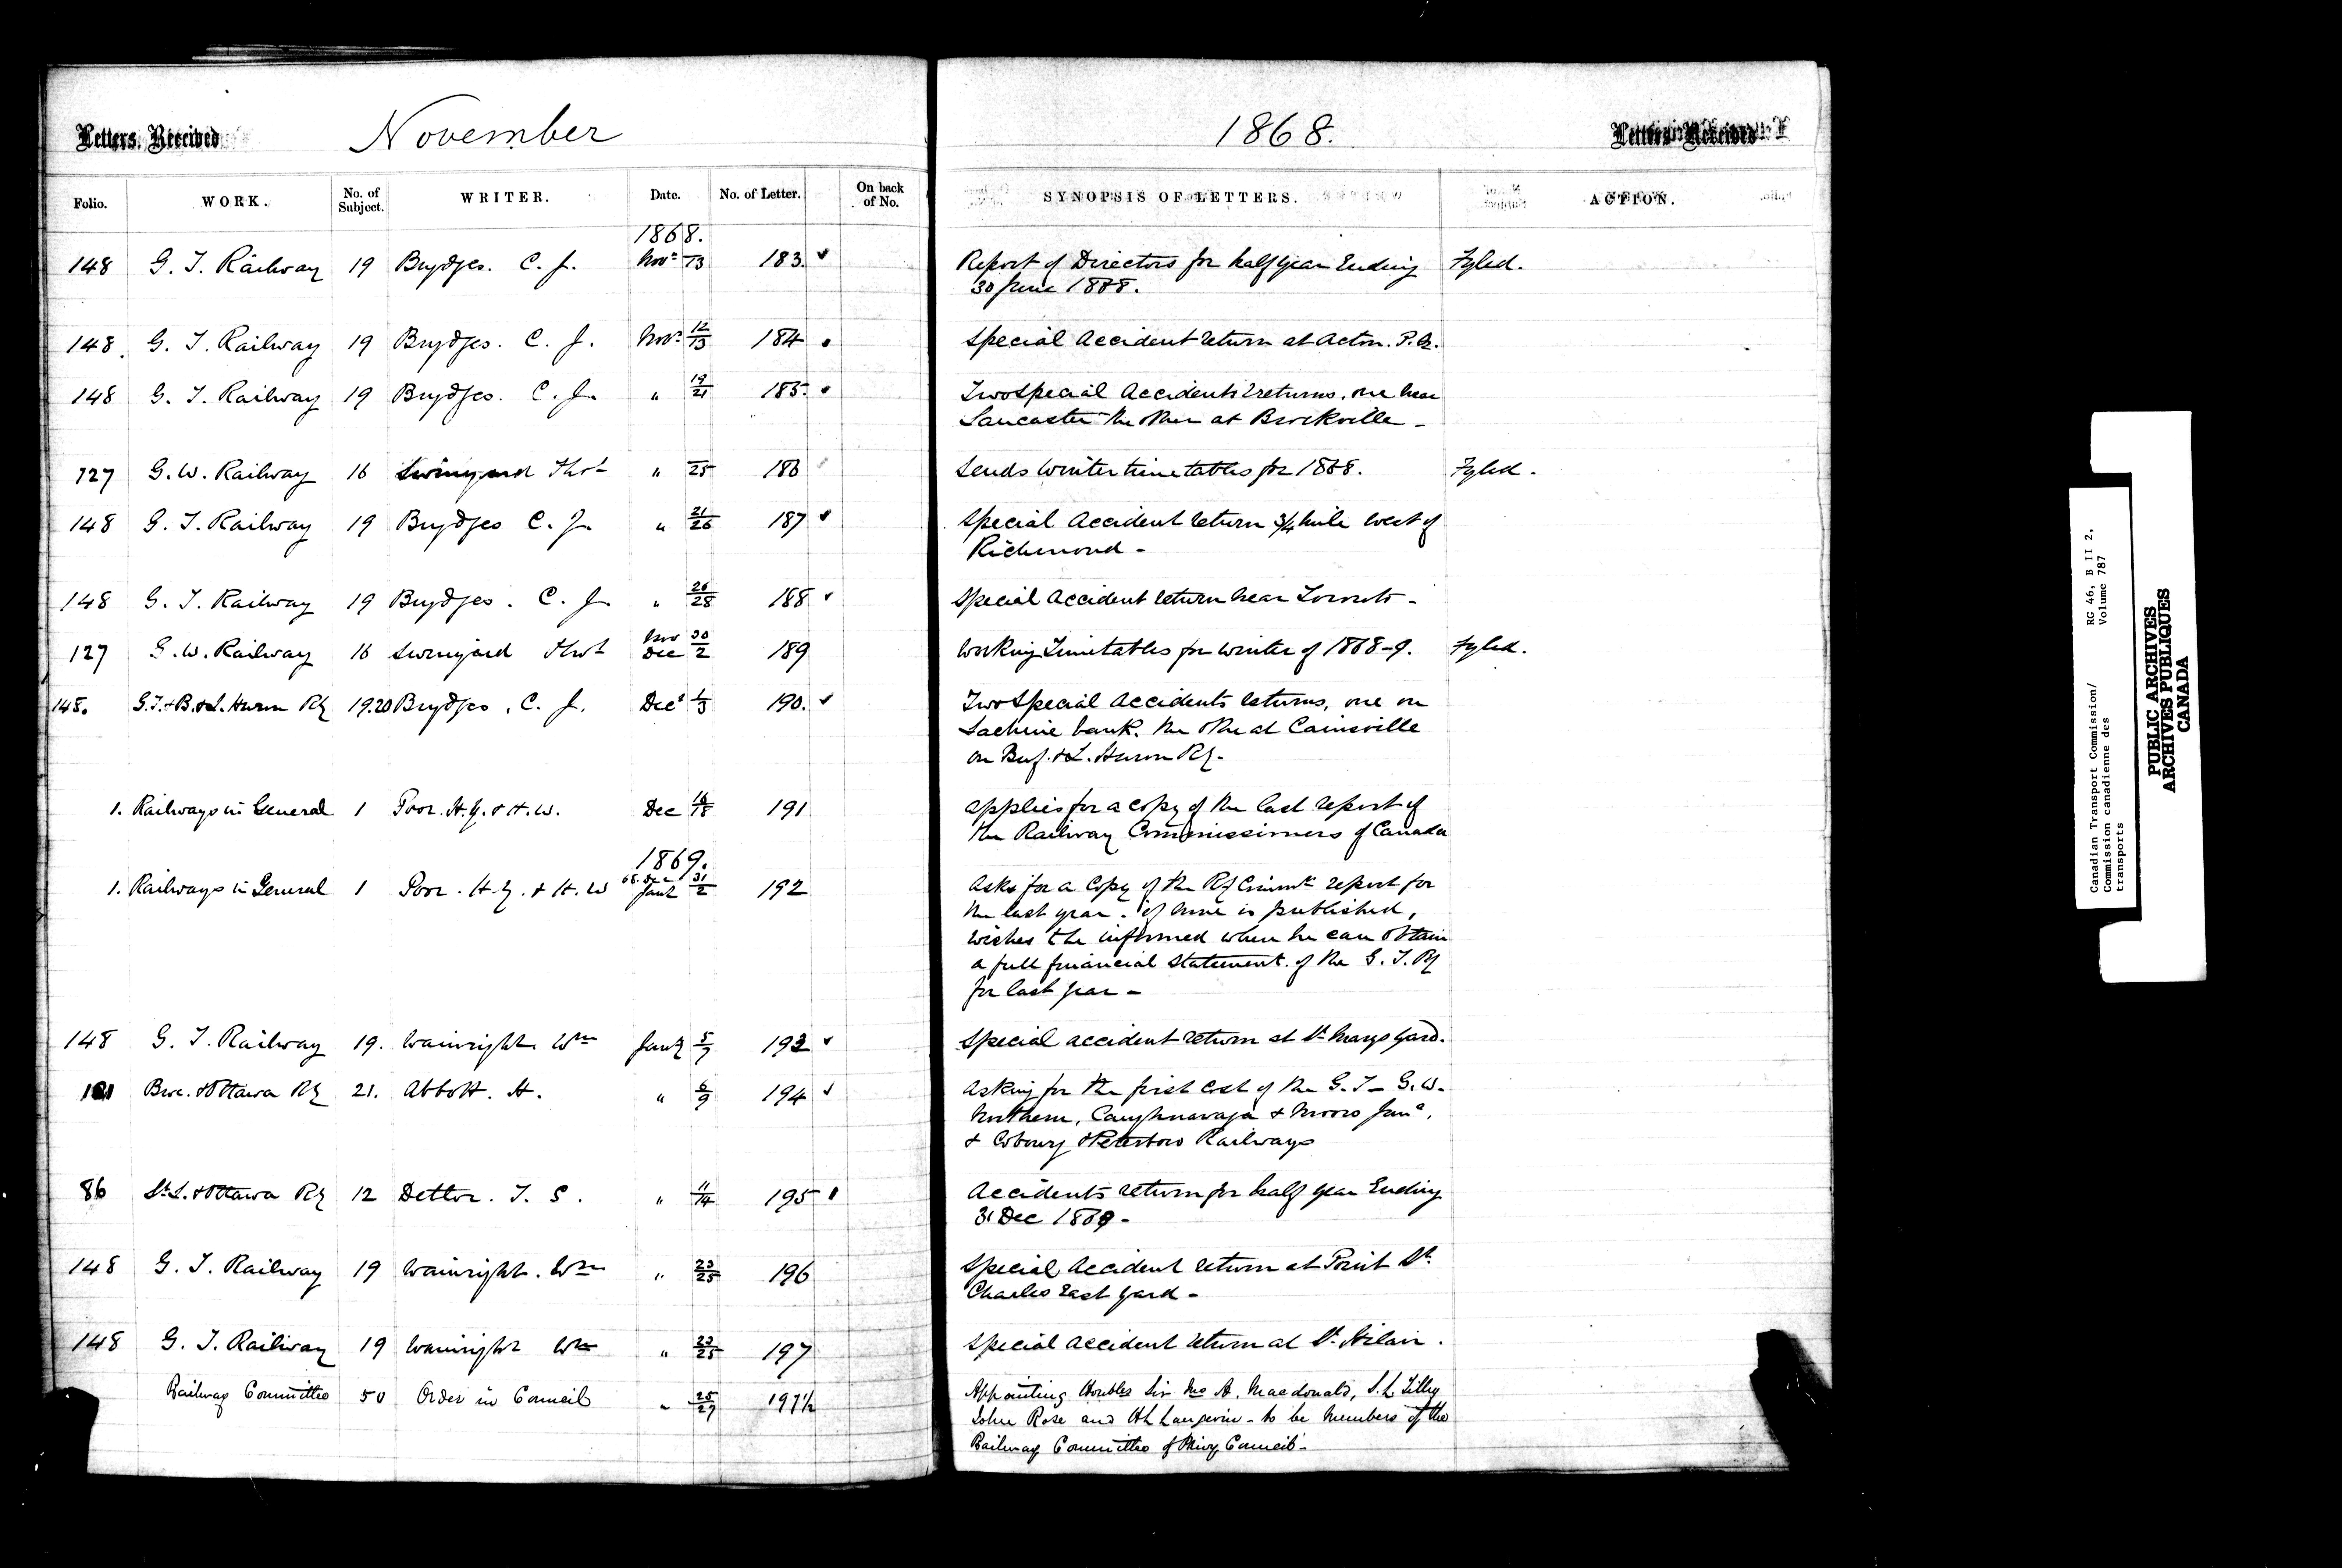 Letters Received November 1868. Letters Received
Folio. WORK. No. of Subject. WRITER. Date. No. of Letter. On back of No. SYNOPSIS OF LETTERS. ACTION.
1868.
148 G. T. Railway 19 Brydges. C. J. Novr 13 183. Report of Directors for half year Ending Fyled.
30 June 1868.
148. G. T. Railway 19 Brydges. C. J. Novr 12/13 184 Special Accident return at Acton. P.Q.
148 G. T. Railway 19 Brydges. C. J. " 19/21 185. Two Special Accidents returns. one near
Lancaster the other at Brockville -
127 G. W. Railway 16 Swinyard Thos " 25 186 Sends Winter time tables for 1868. Fyled.
148 G. T. Railway 19 Brydges C. J. " 21/26 187 Special Accident return 3/4 mile west of
Richmond -
148 G. T. Railway 19 Brydges. C. J. " 26/28 188 Special Accident return near Toronto -
127 G. W. Railway 16 Swinyard Thos Nov 30 Dec 2 189 Working Timetables for winter of 1868-9. Fyled.
148. G.T. + B. & L. Huron Ry 19.20 Brydges. C. J. Decr 1/3 190. Two Special Accidents returns, one on
Lachine bank. the other at Cainsville
on Buf. & L. Huron Ry.
1. Railways in General 1 Poor. H. Y. & H. W. Dec 16/18 191 Applies for a copy of the last report of
the Railway Commissioners of Canada
1869.
1. Railways in General 1 Poor. H. Y. & H. W 68. Dec 31 Jany 2 192 Asks for a Copy of the Ry Commrs report for
the last year. if none is published,
wishes to be informed when he can obtain
a full financial statement. of the G. T. Ry
for last year -
148 G. T. Railway 19. Wainright Wm Jany 5/7 193 Special accident return at St Marys Yard.
181 Broc. & Ottawa Ry 21. Abbott. H. " 6/9 194 Asking for the first cost of the G. T - G. W -
Northern, Caughnawaga & Mooro Junc.
& Cobourg & Peterboro Railways
86 St L. & Ottawa Ry 12 Dettor. T. S. " 11/14 195 Accidents return for half year Ending
31 Dec 1869 -
148 G. T. Railway 19 Wainright. Wm " 23/25 196 Special Accident return at Point St.
Charles East Yard -
148 G. T. Railway 19 Wainright Wm " 23/25 197 Special Accident return at St. Hilair.
Railway Committee 50 Order in Council " 25/27 197 1/2 Appointing Honbles Sir Jno A. Macdonald, S. L Tilley
John Rose and HL Langevin - to be members of the
Railway Committee of Privy Council -
Canadian Transport Commission/
Commission canadienne des
transports
RG 46, B II 2,
Volume 787
PUBLIC ARCHIVES
ARCHIVES PUBLIQUES
CANADA